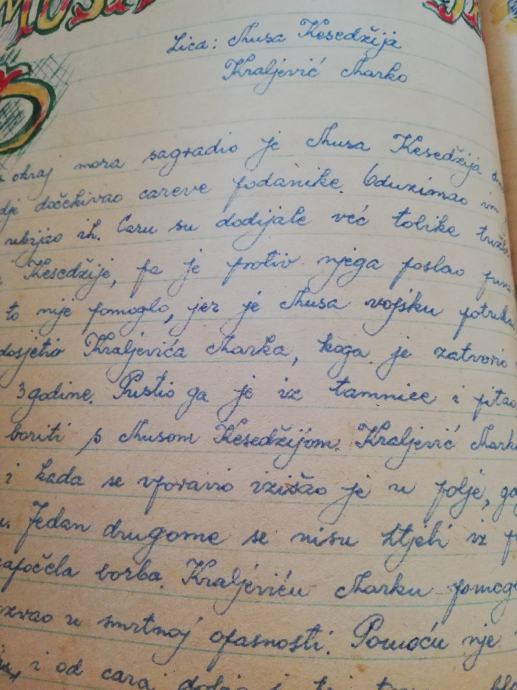 Lica: Musa Kesedžija
Kraljević Marko
kraj mora sagradio je Musa Kesedžija
dje dočekivao careve podanike. Oduzimao im
ubijao ih. Caru su dodijale već tolike
Kesedžije, pa je protiv njega poslao
to nije pomoglo, jer je Musa vojsku
dosjetio Kraljevića Marka, koga je zatvorio
3 godine. Pustio ga je iz tamnice i pitao
boriti s Musom Kesedžijom. Kraljević Marko
i kada se oporavio izišao je u polje,
Jedan drugome se nisu htjeli iz
započela borba. Kraljeviću Marku
u smrtnoj opasnosti. Pomoću nje
i od cara